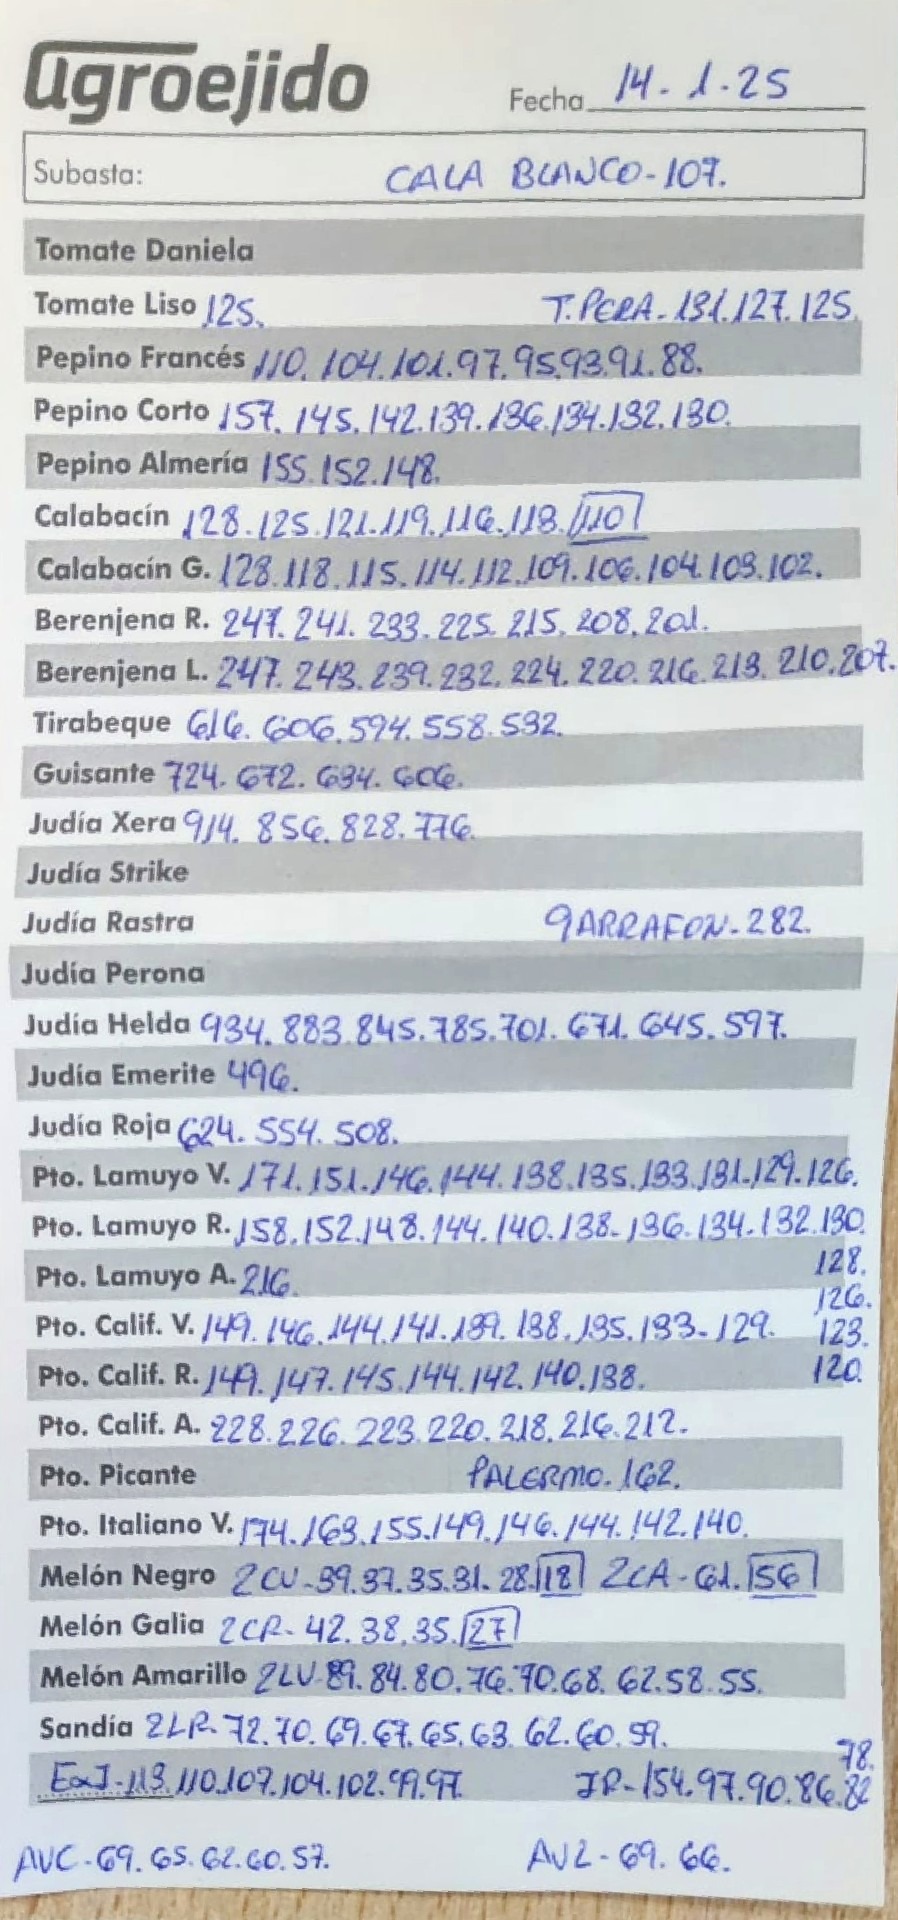 agroejido
Fecha 14.1.25
Subasta: CALA BLANCO-107.
Tomate Daniela
Tomate Liso 125. T.PERA-131.127.125.
Pepino Francés 110.104.101.97.95.93.91.88.
Pepino Corto 157.145.142.139.136.134.132.130.
Pepino Almería 155.152.148.
Calabacín 128.125.121.119.116.113.110
Calabacín G. 128.118.115.114.112.109.106.104.103.102.
Berenjena R. 247.241.233.225.215.208.201.
Berenjena L. 247.243.239.232.224.220.216.213.210.207.
Tirabeque 616.606.594.558.532.
Guisante 724.672.634.606.
Judía Xera 914.856.828.776.
Judía Strike
Judía Rastra GARRAFON-282.
Judía Perona
Judía Helda 934.883.845.785.701.671.645.597.
Judía Emerite 496.
Judía Roja 624.554.508.
Pto. Lamuyo V. 171.151.146.144.138.135.133.131.129.126.
Pto. Lamuyo R. 158.152.148.144.140.138.136.134.132.130.
128.
Pto. Lamuyo A. 216.
126.
Pto. Calif. V. 149.146.144.141.139.138.135.133.129. 123.
Pto. Calif. R. 149.147.145.144.142.140.138. 120.
Pto. Calif. A. 228.226.223.220.218.216.212.
Pto. Picante PALERMO.162.
Pto. Italiano V. 174.163.155.149.146.144.142.140.
Melón Negro 2CV-39.37.35.31.28.18 2CA-61.56
Melón Galia 2CR-42.38.35.27
Melón Amarillo 2LV-89.84.80.76.70.68.62.58.55.
Sandía 2LR-72.70.69.67.65.63.62.60.59.
78.
ExJ-113.110.107.104.102.99.97. JR-154.97.90.86.82
AVC-69.65.62.60.57. AV2-69.66.